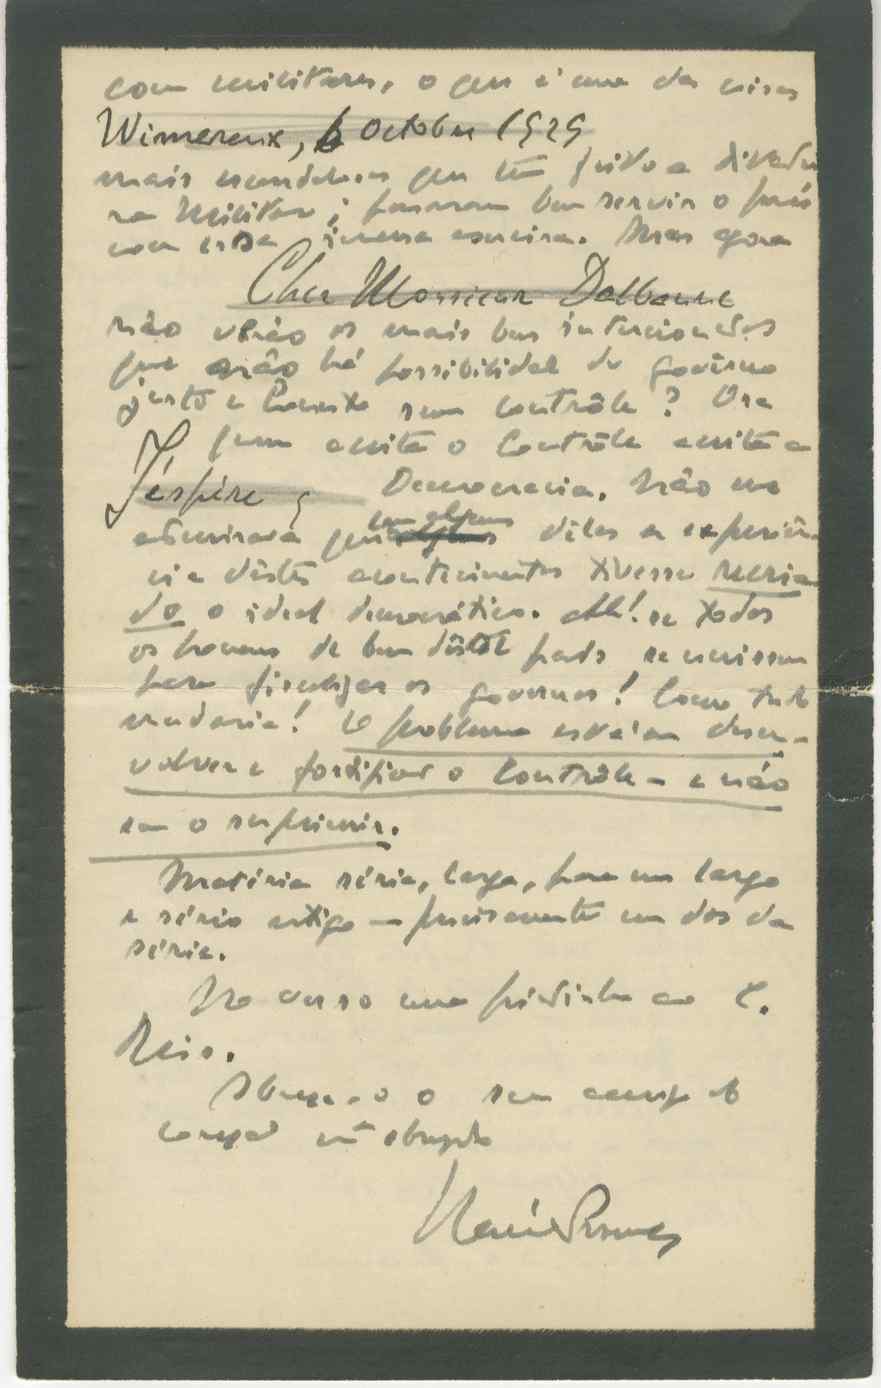 com militares, o que é uma das coisas
Wimereux, 6 October 1929
mais escandalosas que tem feito a Ditadu
ra Militar; pensaram bem servir o país
com essa imensa asneira. Mas agora
Cher Monsieur Dalbanne
não verão os mais bem intencionados
que não há possibilidade de govêrno
justo e honesto sem contrôle? Ora
quem aceita o Contrôle aceita a
J'espère
Democracia. Não me
admirava que em alguns dêles a experiên-
cia dêstes acontecimentos tivesse recria
do o ideal democrático. Ah! se todos
os homens de bem dêste país se unissem
para fiscalizar os governos! Como tudo
mudaria! O problema está em desen-
volver e fortificar o Contrôle – e não
em o suprimir.
Matéria séria, larga, para um largo
e sério artigo – precisamente um dos da
série.
No verso uma piadinha ao C.
Reis.
Abraça-o o seu amigo
camarada mto obrigado